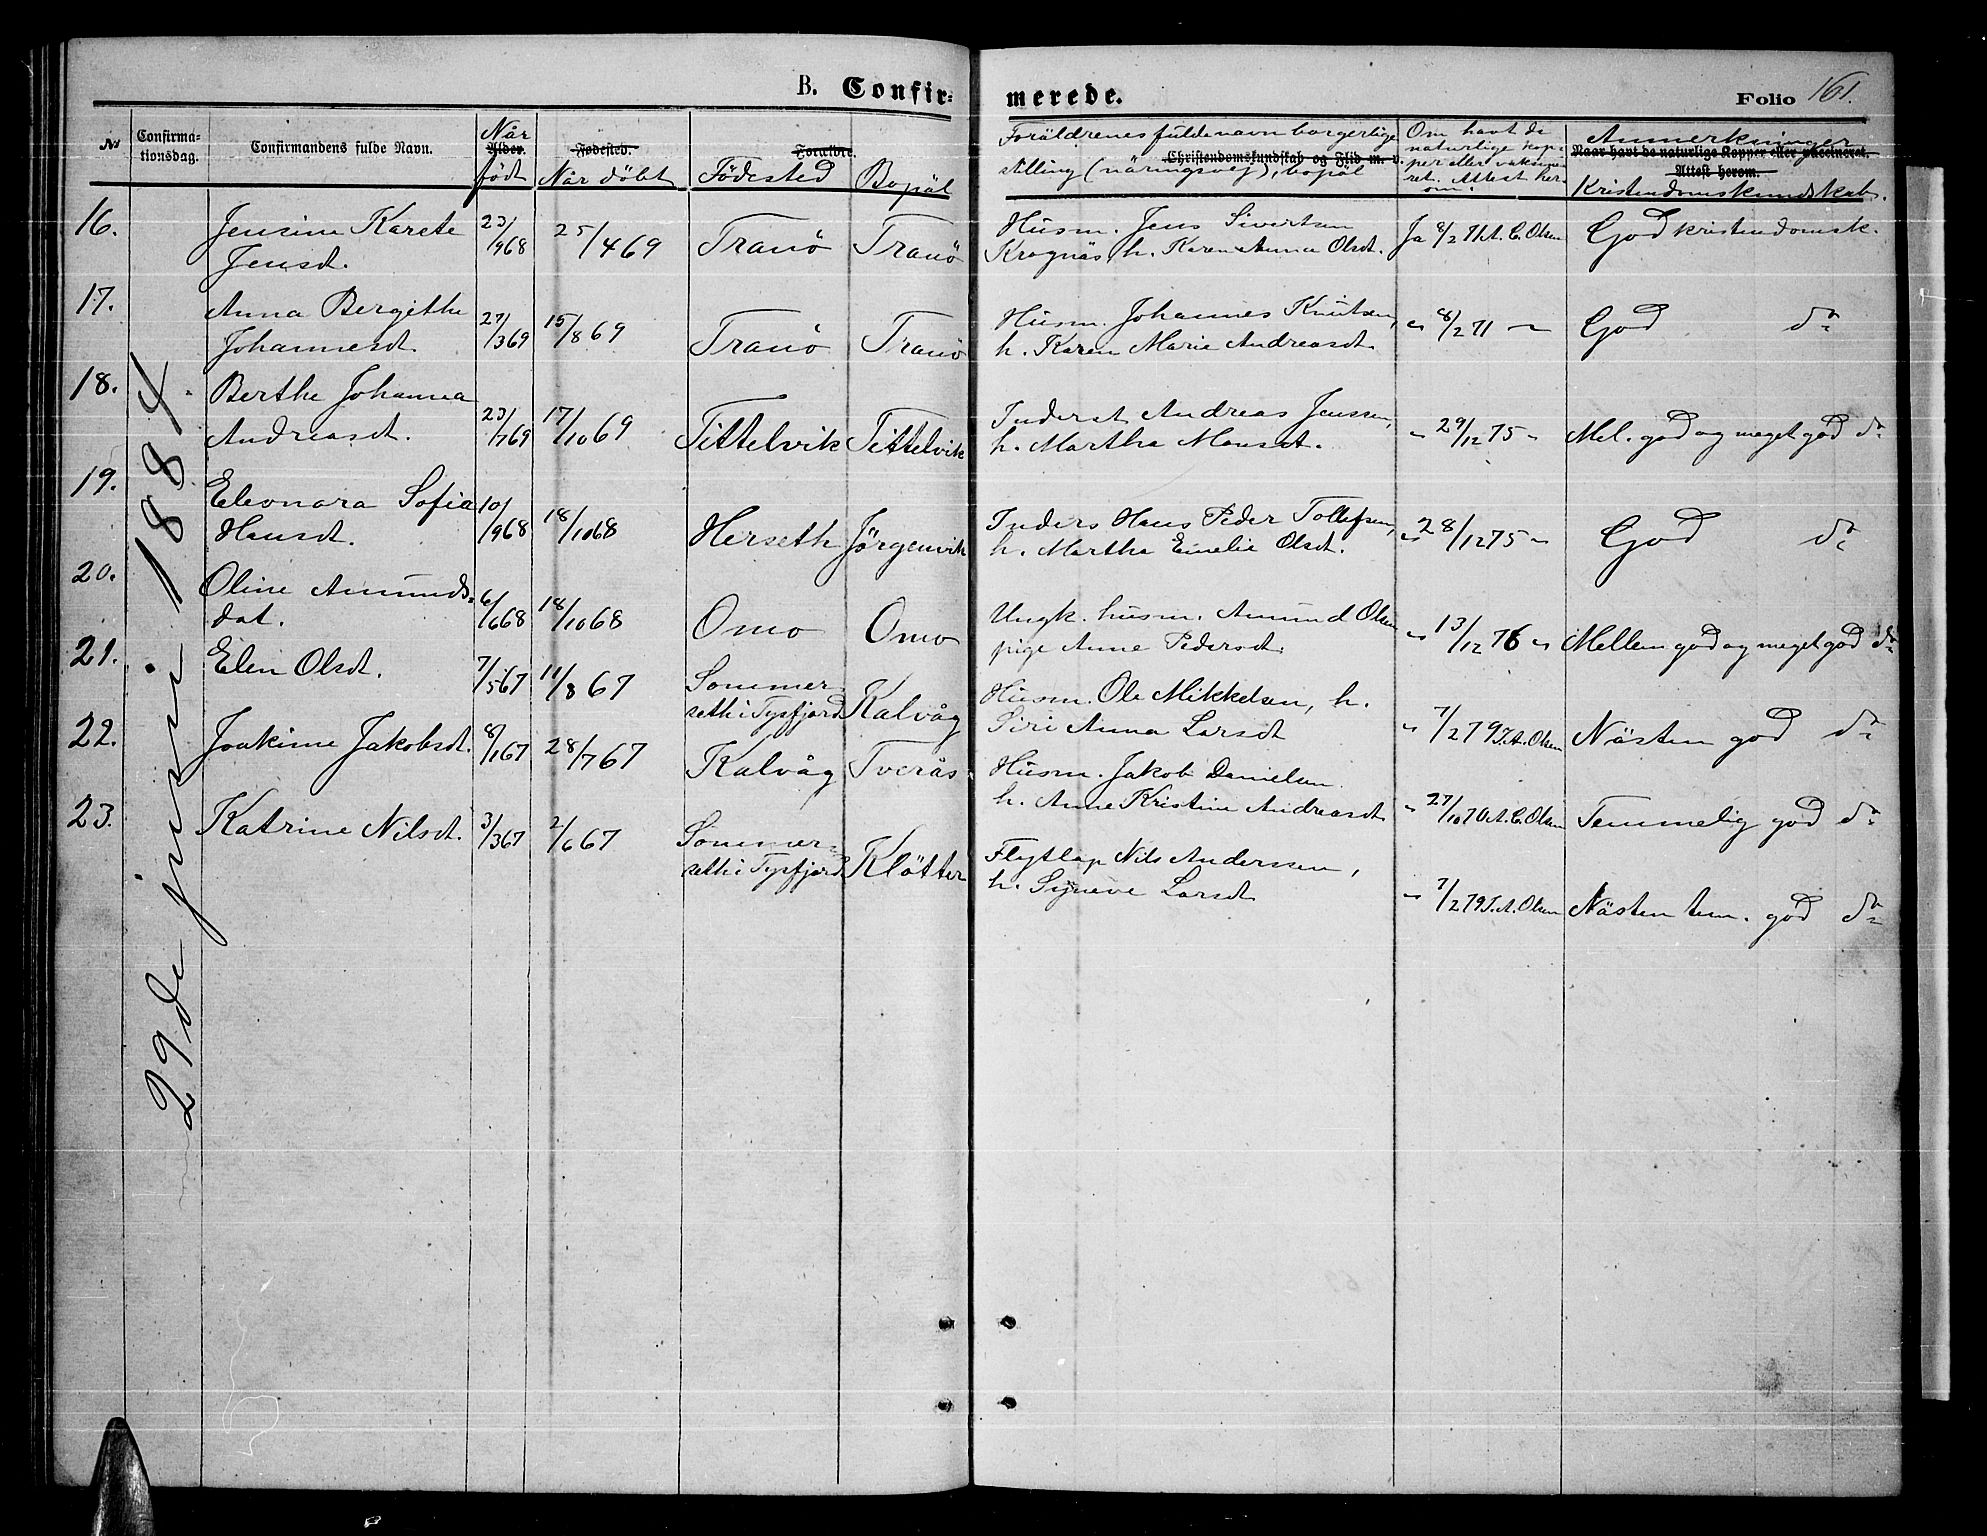 B. Confir-
merede.
Folio 161.
No
Confirma-
tionsdag.
Confirmandens fulde Navn.
Når
Alder.
födt
Fødested.
Når döbt
Forældre.
Födested
Bopäl
Foräldrenes fulde navn borgerlige
Christendomskundskab og Flid m. v.
stilling (näringsvej), bopäl
Om havt de
naturlige kop-
per eller vaksine-
ret. Attest her-
om.
Anmerkninger
Naar havt de naturlige Kopper eller vaccineret.
Attest herom.
Kristendomskundskab.
29de juni 1884.
16.
Jensine Karete
Jensdt.
23/968
25/469
Tranö
Tranö
Husm. Jens Sivertsen
Kragnäs, h. Karen Anna Olsdt.
Ja 8/271 A. C. Olsen
God kristendomsk.
17.
Anna Bergithe
Johannesdt.
27/369
15/869
Tranö
Tranö
Husm. Johannes Knutsen,
h. Karen Marie Andreasdt.
" 8/271 "
God do
18.
Berthe Johanna
Andreasdt.
23/769
17/1069
Tittelvik
Tittelvik
Inderst Andreas Jenssen,
h. Martha Mansdt.
" 29/1275 "
Mel. god og meget god do
19.
Eleonara Sofia
Hansdt.
10/968
18/1068
Herseth
Jörgenvik
Inders Hans Peder Tollefsen,
h. Martha Emelie Olsdt.
" 28/1275 "
God do
20.
Oline Amunds-
dat.
6/668
18/1068
Omo
Omo
Ungk. husm. Amund Olsen
pige Anne Pedersdt.
" 13/1276 "
Mellem god og meget god do
21.
Elen Olsdt.
7/567
11/867
Sommer-
seth i Tysfjord
Kalvåg
Husm. Ole Mikkelsen, h.
Siri Anna Larsdt
" 7/279 J. A. Olsen
Nästen god do
22.
Joakime Jakobsdt.
8/167
28/767
Kalvåg
Tverås
Husm. Jakob Danielsen
h. Anne Kristine Andreasdt
" 27/1070 A. C. Olsen
Temmelig god do
23.
Katrine Nilsdt.
3/367
2/667
Sommer-
seth i Tysfjord
Klötter
Flytlap Nils Anderssen,
h. Syneve Larsdt
" 7/279 J. A. Olsen
Nästen tem. god do